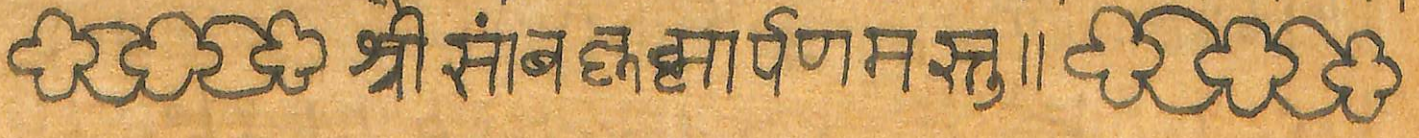 श्री सांब ब्रह्मार्पणमस्तु॥